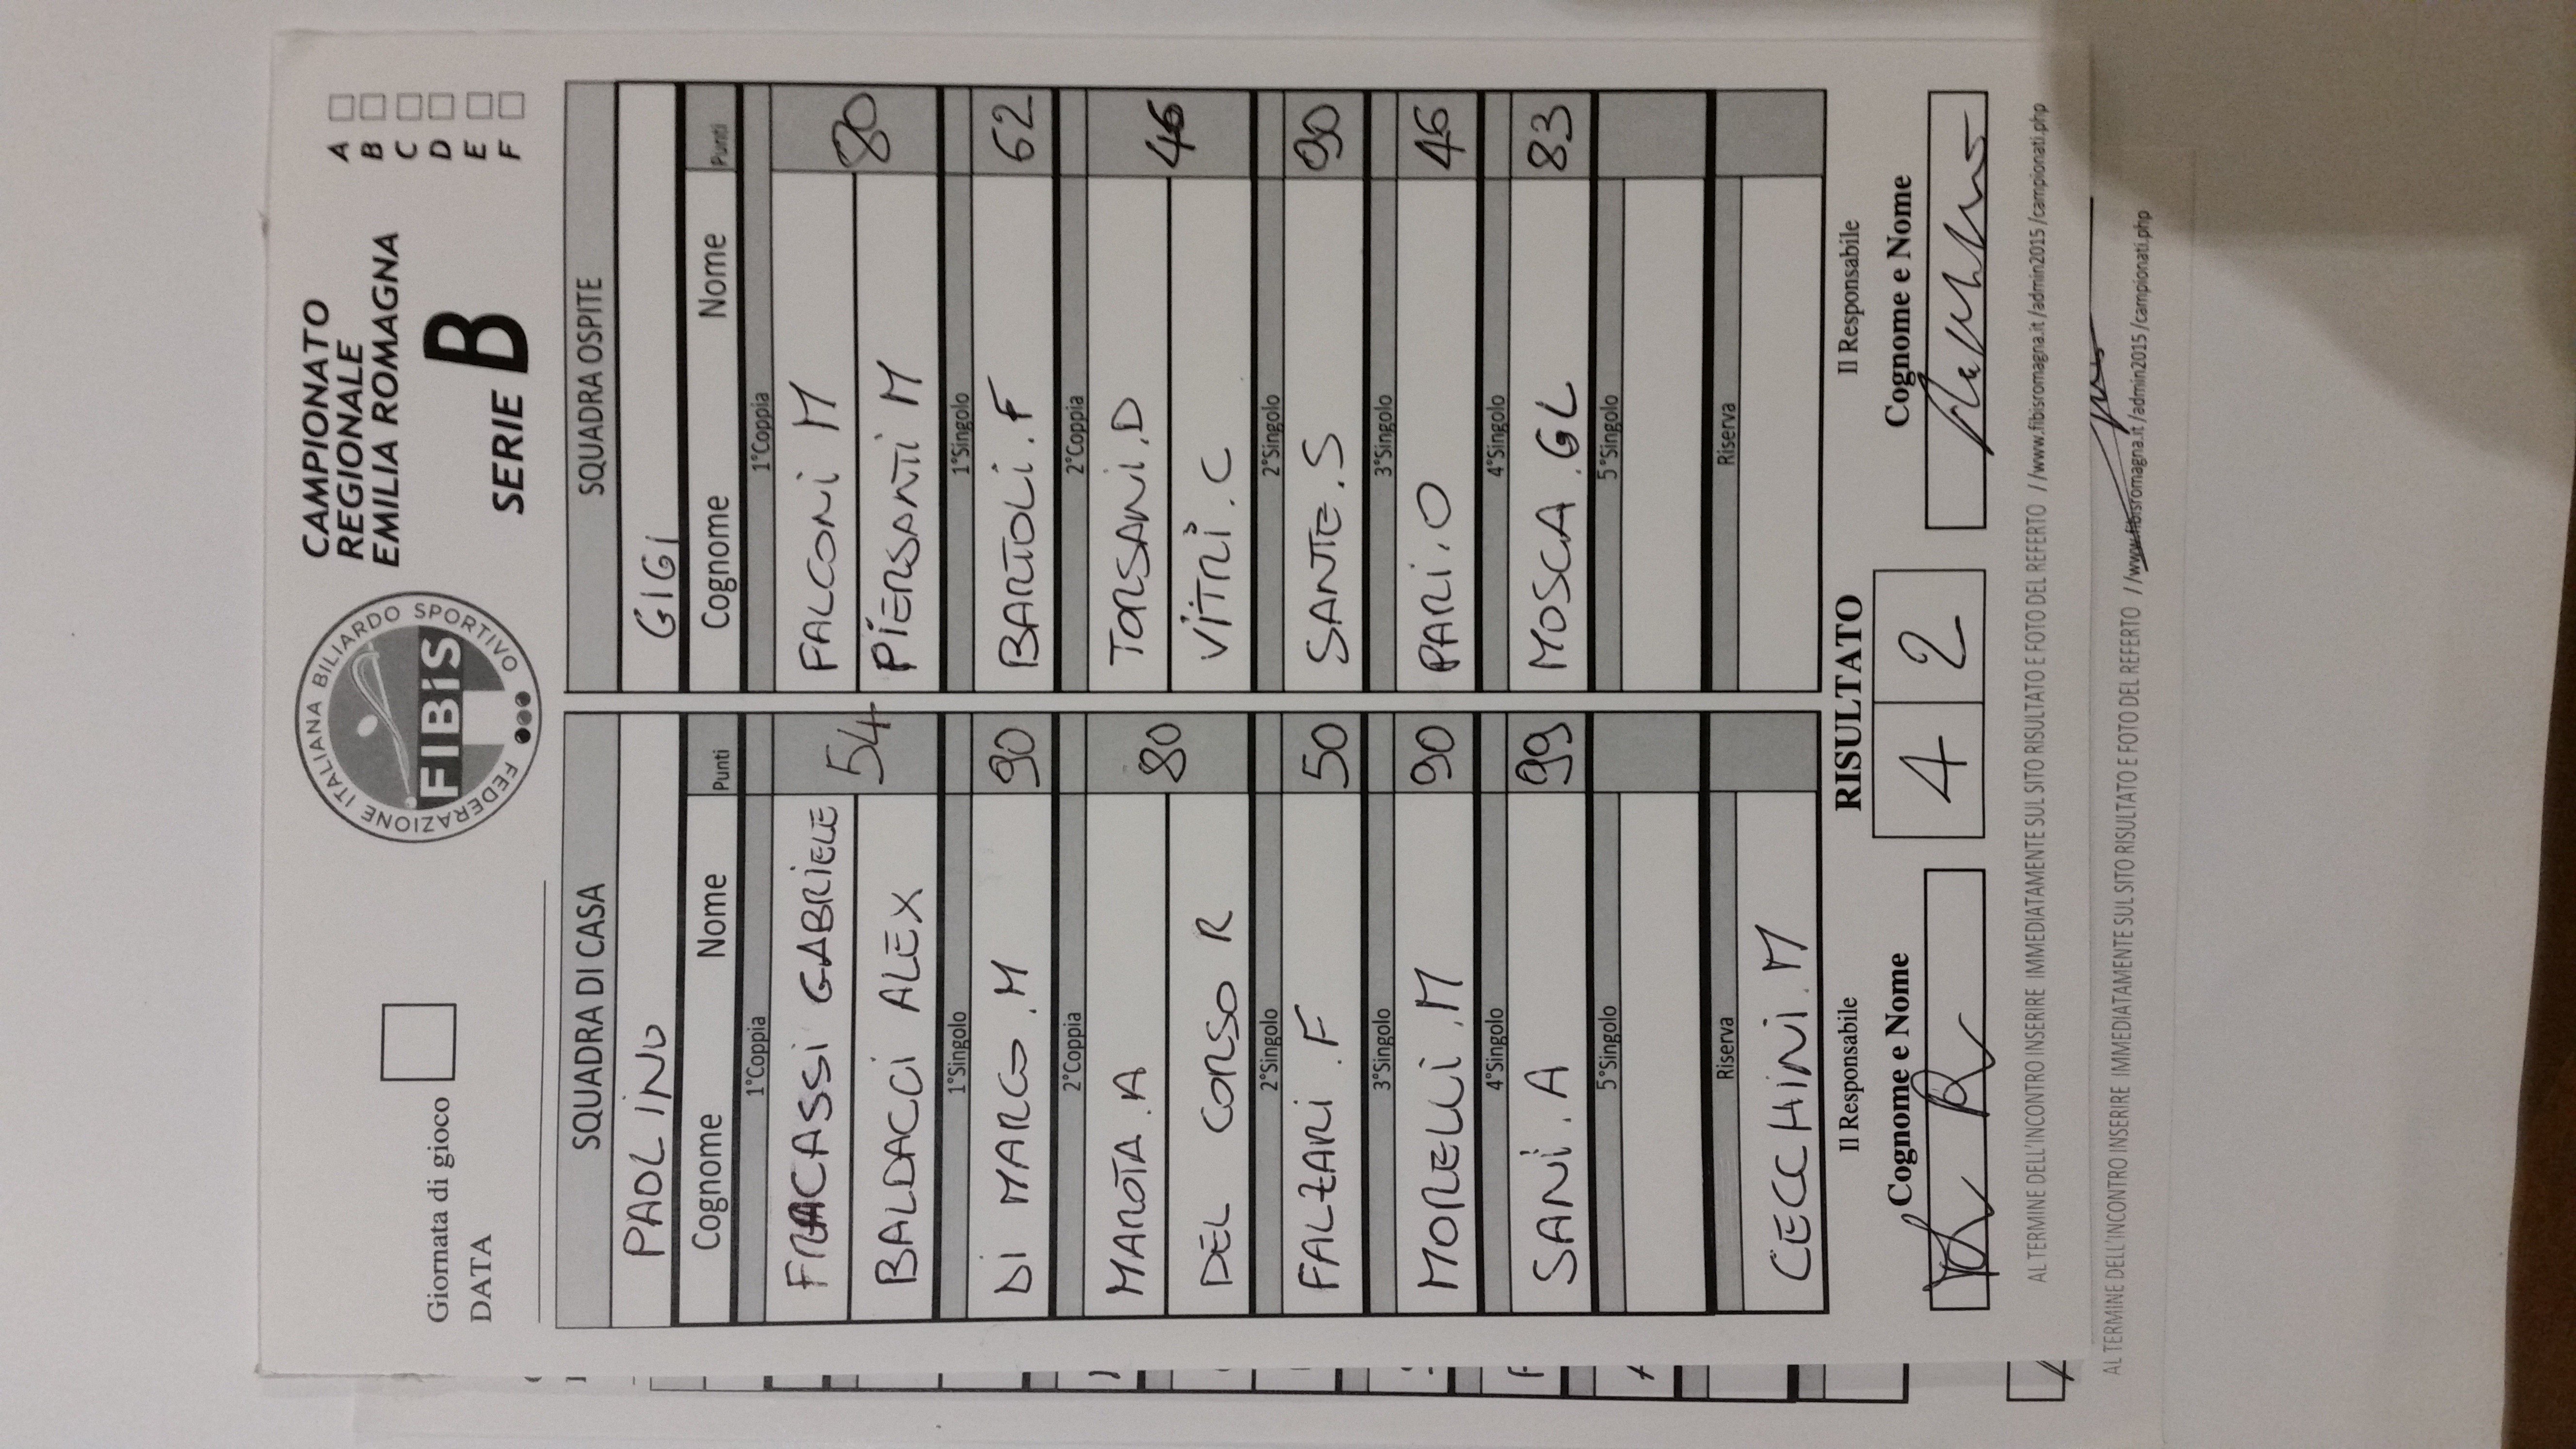 Giornata di gioco
DATA
FEDERAZIONE ITALIANA BILIARDO SPORTIVO
FIBiS
CAMPIONATO
REGIONALE
EMILIA ROMAGNA
SERIE B
A
B
C
D
E
F
SQUADRA DI CASA SQUADRA OSPITE
PAOLINO GIGI
Cognome Nome Punti Cognome Nome Punti
1°Coppia 1°Coppia
FRACASSI GABRIELE FALCONI M
54 80
BALDACCI ALEX PIERSANTI M
1°Singolo 1°Singolo
DI MARCO .M 90 BARTOLI .F 62
2°Coppia 2°Coppia
MAROTA .A TORSANI .D
80 46
DEL CORSO R VITRI . C
2°Singolo 2°Singolo
FALZARI . F 50 SANTE . S 90
3°Singolo 3°Singolo
MORELLI .M 90 PARI . O 46
4°Singolo 4°Singolo
SANI . A 99 MOSCA . GL 83
5°Singolo 5°Singolo
Riserva Riserva
CECCHINI .M
Il Responsabile RISULTATO Il Responsabile
Cognome e Nome 4 2 Cognome e Nome
AL TERMINE DELL'INCONTRO INSERIRE IMMEDIATAMENTE SUL SITO RISULTATO E FOTO DEL REFERTO //www.fibisromagna.it/admin2015/campionati.php
AL TERMINE DELL'INCONTRO INSERIRE IMMEDIATAMENTE SUL SITO RISULTATO E FOTO DEL REFERTO //www.fibisromagna.it/admin2015/campionati.php